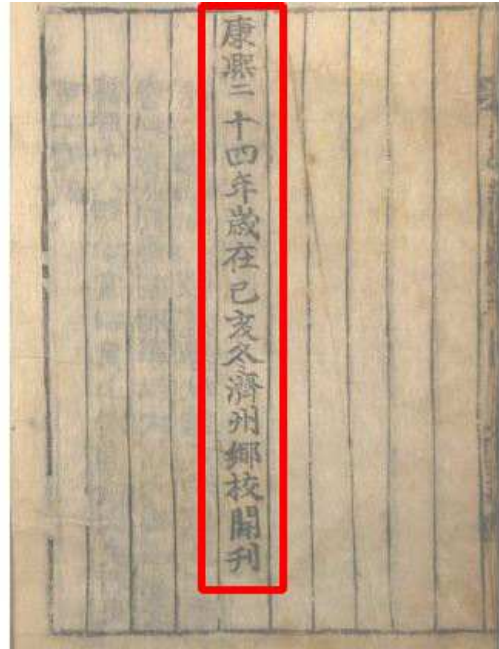 康熙二十四年歲在己亥冬濟州鄕校開刊